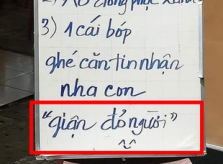 3) 1 cái bóp
ghé căn tin nhận
nha con
"giận đỏ người"